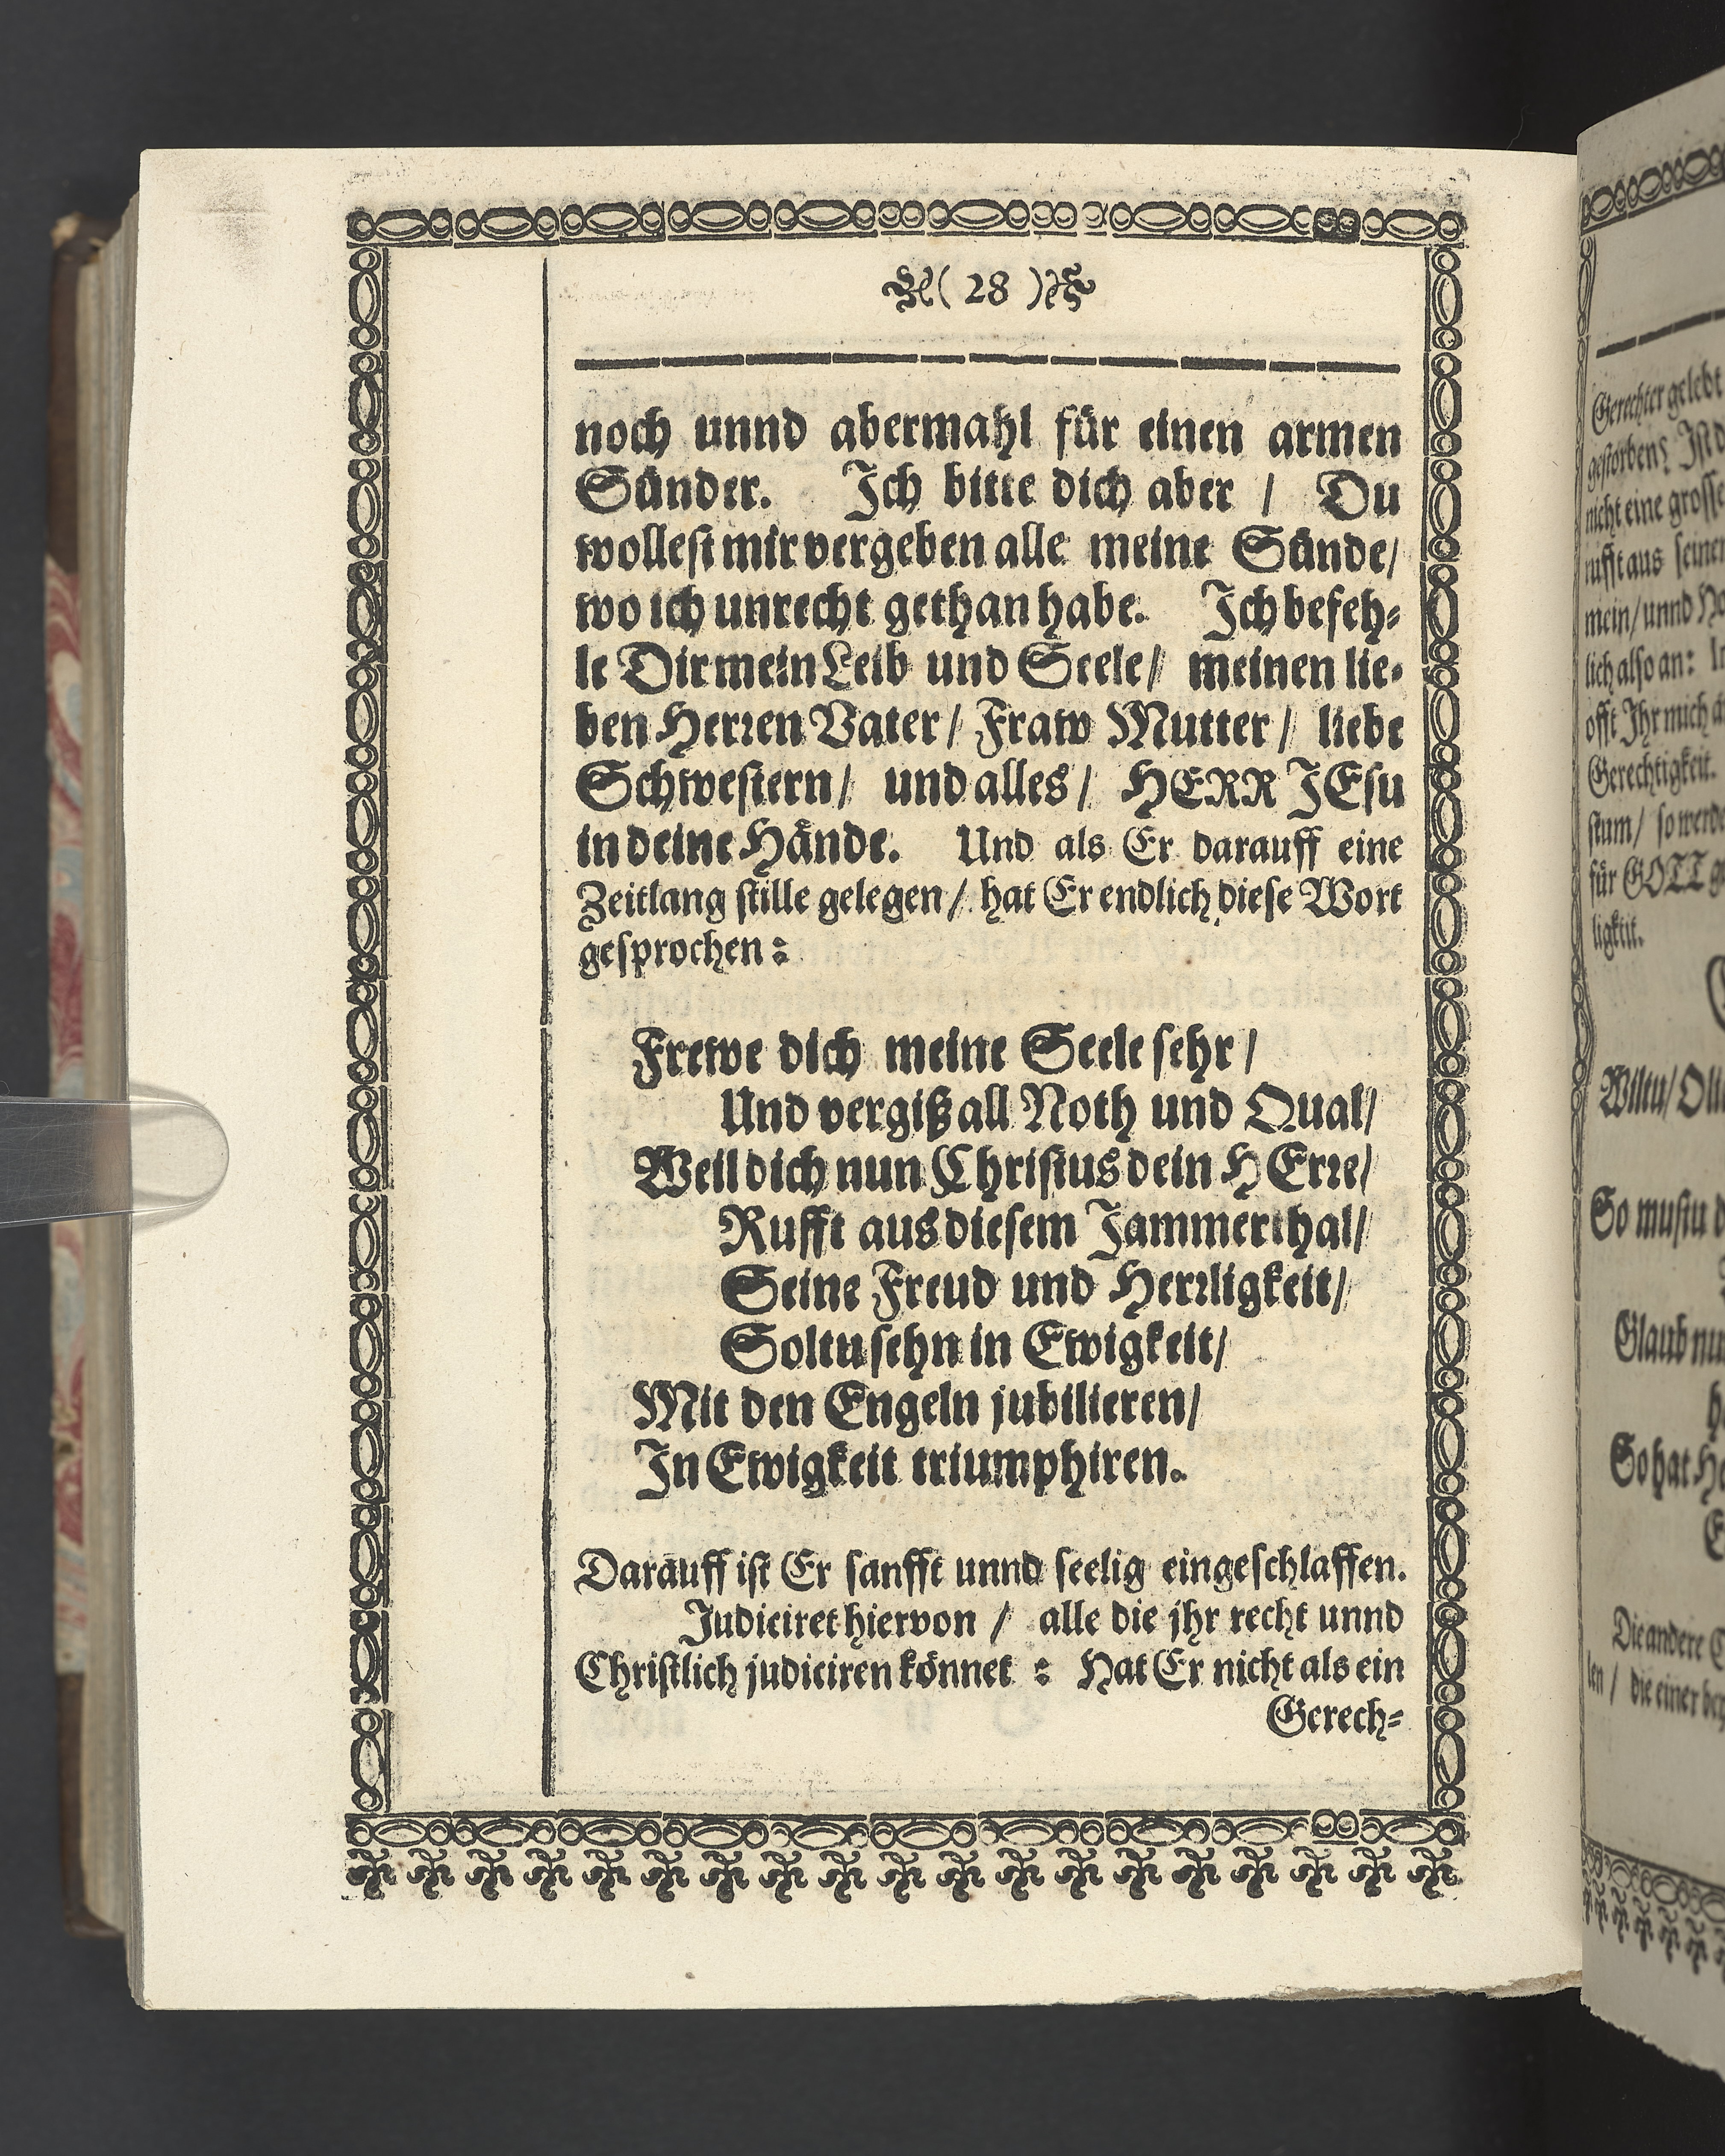 ( 28 )
noch unnd abermahl für einen armen
Sünder. Ich bitte dich aber / Du
wollest mir vergeben alle meine Sünde/
wo ich unrecht gethan habe. Ich befeh-
le Dir mein Leib und Seele/ meinen lie-
ben Herren Vater/ Fraw Mutter/ liebe
Schwestern/ und alles/ HERR JEsu
in deine Hände. Und als Er darauff eine
Zeitlang stille gelegen/ hat Er endlich diese Wort
gesprochen:
Frewe dich meine Seele sehr/
Und vergiß all Noth und Qual/
Weil dich nun Christus dein HErre/
Rufft aus diesem Jammerthal/
Seine Freud und Herrligkeit/
Soltu sehn in Ewigkeit/
Mit den Engeln jubilieren/
In Ewigkeit triumphiren.
Darauff ist Er sanfft unnd seelig eingeschlaffen.
Judiciret hiervon / alle die jhr recht unnd
Christlich judiciren könnet : Hat Er nicht als ein
Gerech-
Gerechter gelebt
gestorben? Ist d
nicht eine grosse
rufft aus seinem
mein/ unnd
lich also an:
offt Ihr mich
Gerechtigkeit.
stum/ so werde
für GOTT
ligkeit.
Wiltu/
So mustu
Glaub nu
So hat
Die andere
len / die einer